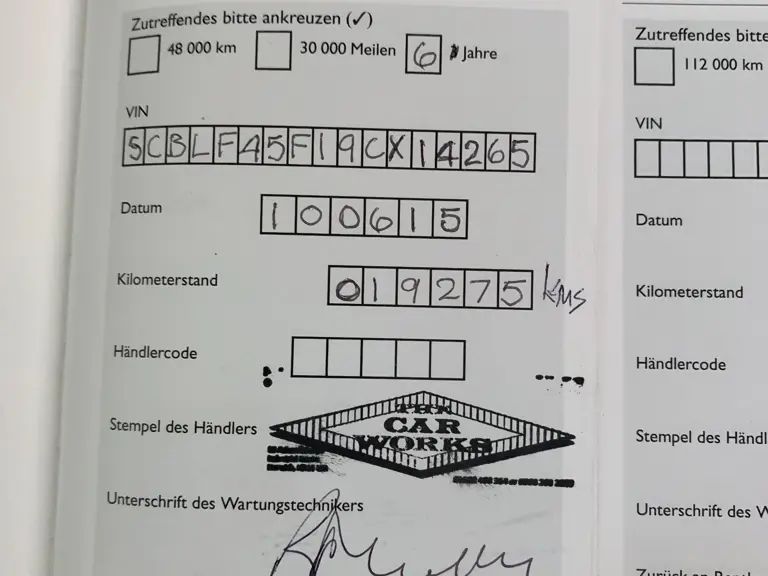 Zutreffendes bitte ankreuzen (✓)
48 000 km 30 000 Meilen 6 Jahre
VIN
SCBLF45F19CX14265
Datum 100615
Kilometerstand 019275 kms
Händlercode
Stempel des Händlers
THE
CAR
WORKS
Unterschrift des Wartungstechnikers
Zutreffendes bitte
112 000 km
VIN
Datum
Kilometerstand
Händlercode
Stempel des Händl
Unterschrift des W